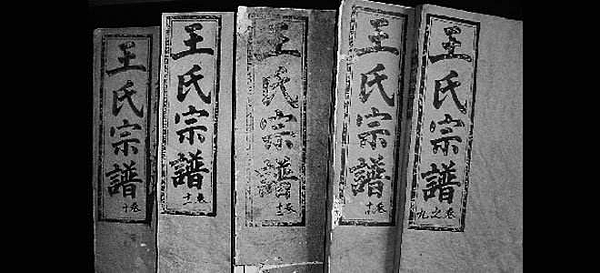 王氏宗譜
卷之九
王氏宗譜
卷十
王氏宗譜
卷
王氏宗譜
卷十一
王氏宗譜
卷十